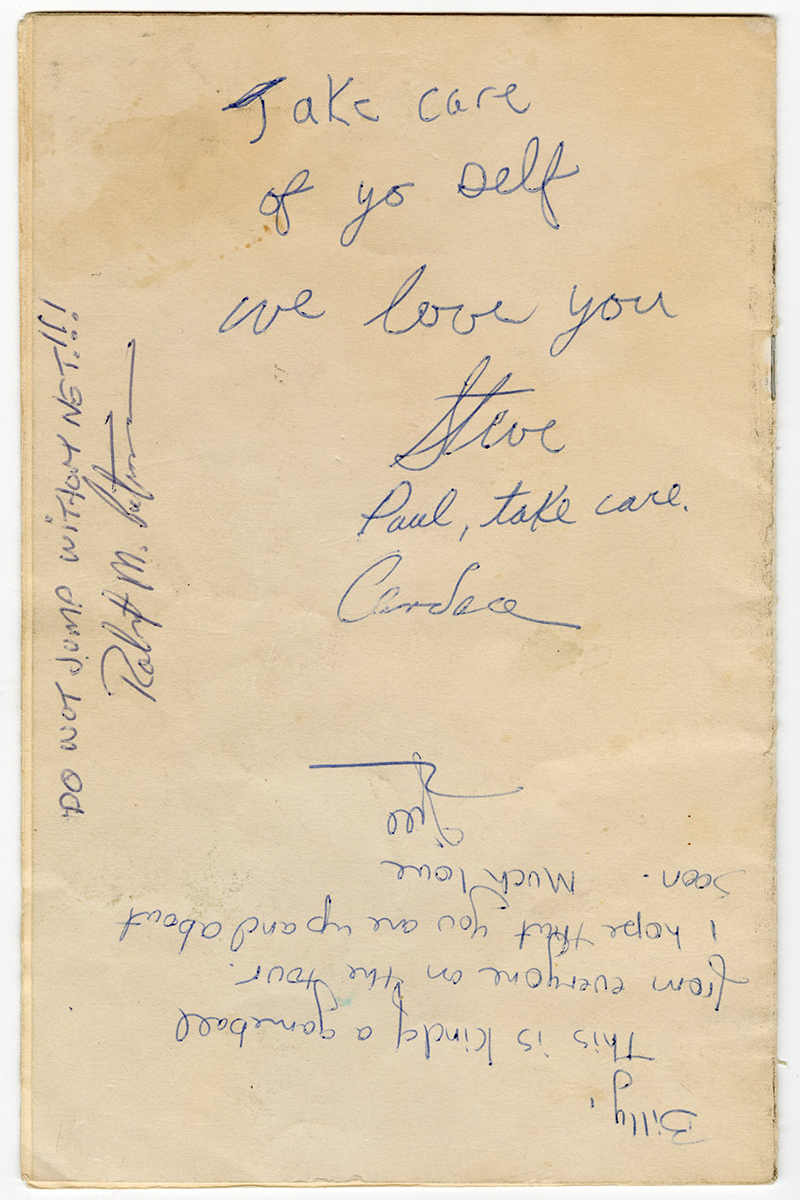 Take care
of yo self
we love you
Steve
Paul, take care.
Candace
DO NOT JUMP WITHOUT NET!!!
Robert M.
Billy,
This is kinda a gameball
from everyone on the tour.
I hope that you are up and about
soon. Much love
Jill